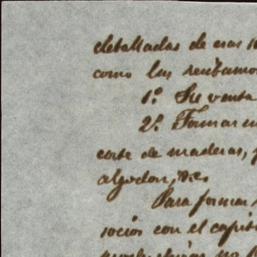 detalladas de esas
como las recibamos
1º. Su venta
2º. Formar
corte de maderas,
algodon, &c
Para formar
socios con el capit